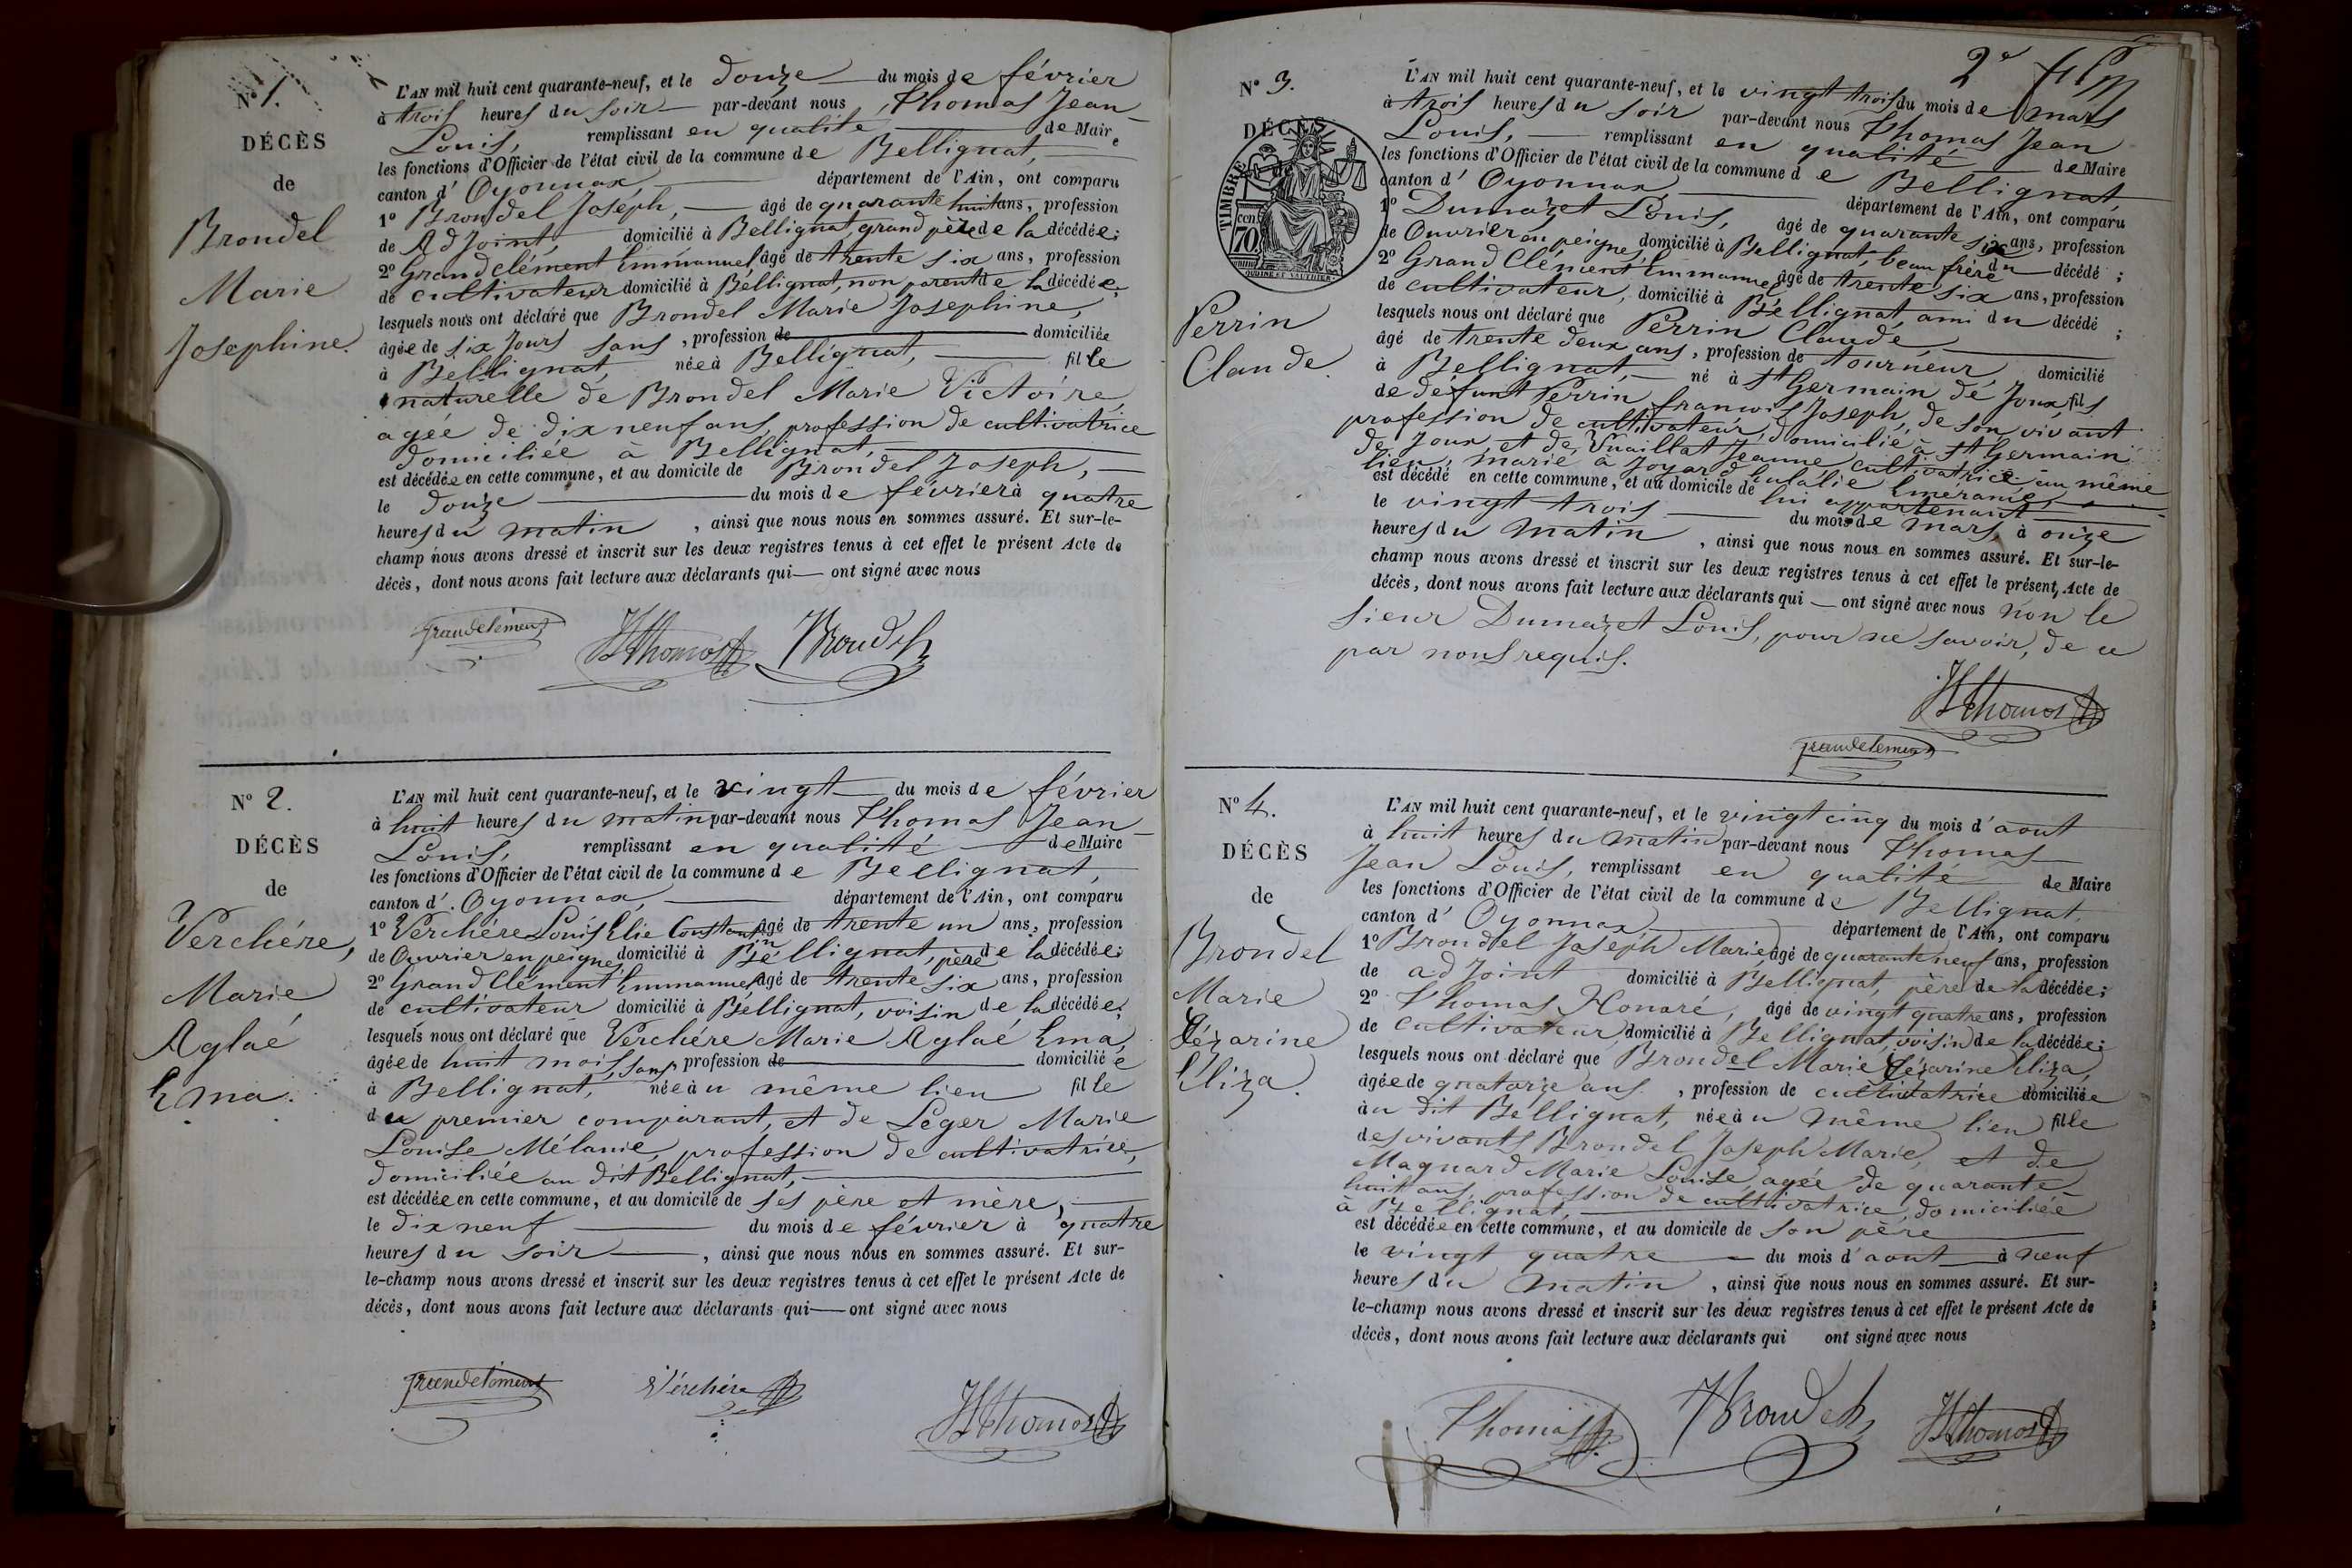 N° 1.
DÉCÈS
de
Brondel
Marie
Josephine.
L'AN mil huit cent quarante-neuf, et le douze du mois de février
à trois heures du soir par-devant nous Thomas Jean
Louis, remplissant en qualité de Maire
les fonctions d'Officier de l'état civil de la commune de Bellignat,
canton d' Oyonnax, département de l'Ain, ont comparu
1° Brondel Joseph, âgé de quarante huit ans, profession
de Adjoint, domicilié à Bellignat, grand père de la décédée;
2° Grandclément Emmanuel âgé de trente six ans, profession
de cultivateur domicilié à Bellignat, non parent de la décédée,
lesquels nous ont déclaré que Brondel Marie Josephine,
âgée de six Jours sans, profession de domiciliée
à Bellignat, née à Bellignat, fille
naturelle de Brondel Marie Victoire,
agée de dix neuf ans, profession de cultivatrice
domiciliée à Bellignat,
est décédée en cette commune, et au domicile de Brondel Joseph,
le douze du mois de février à quatre
heures du matin, ainsi que nous nous en sommes assuré. Et sur-le-
champ nous avons dressé et inscrit sur les deux registres tenus à cet effet le présent Acte de
décès, dont nous avons fait lecture aux déclarants qui ont signé avec nous
Grandclément JLThomas Brondel
N° 2.
DÉCÈS
de
Verchére,
Marie
Aglaé
Ema.
L'AN mil huit cent quarante-neuf, et le vingt du mois de février
à huit heures du matin par-devant nous Thomas Jean
Louis, remplissant en qualité de Maire
les fonctions d'Officier de l'état civil de la commune de Bellignat,
canton d' Oyonnax, département de l'Ain, ont comparu
1° Verchére Louis Elie Constantin âgé de trente un ans, profession
de Ouvrier en peigne, domicilié à Bellignat, père de la décédée;
2° Grand Clément Emmanuel âgé de trente six ans, profession
de cultivateur domicilié à Bellignat, voisin de la décédée;
lesquels nous ont déclaré que Verchére Marie Aglaé Ema,
âgée de huit mois, sans profession de domiciliée
à Bellignat, née au même lieu fille
du premier comparant, et de Leger Marie
Louise Mélanie, profession de cultivatrice,
domiciliée au dit Bellignat,
est décédée en cette commune, et au domicile de ses père et mère,
le dix neuf du mois de février à quatre
heures du soir, ainsi que nous nous en sommes assuré. Et sur-
le-champ nous avons dressé et inscrit sur les deux registres tenus à cet effet le présent Acte de
décès, dont nous avons fait lecture aux déclarants qui ont signé avec nous
Grandclément Verchére JLThomas
2e
N° 3.
DÉCÈS
TIMBRE
70
cen.
Perrin
Claude.
L'AN mil huit cent quarante-neuf, et le vingt trois du mois de mars
à trois heures du soir par-devant nous Thomas Jean
Louis, remplissant en qualité de Maire
les fonctions d'Officier de l'état civil de la commune de Bellignat,
canton d' Oyonnax, département de l'Ain, ont comparu
1° Dumazet Louis, âgé de quarante six ans, profession
de Ouvrier en peigne, domicilié à Bellignat, beau frère du décédé;
2° Grand Clément Emmanuel âgé de trente six ans, profession
de cultivateur, domicilié à Bellignat, ami du décédé;
lesquels nous ont déclaré que Perrin Claude
âgé de trente deux ans, profession de tourneur domicilié
à Bellignat, né à St Germain de Joux, fils
de défunt Perrin francois Joseph, de son vivant
profession de cultivateur, domicilié à St Germain
de Joux, et de Vuaillat Jeanne cultivatrice au même
lieu, marié à Joyard Eulalie Emérantie,
est décédé en cette commune, et au domicile de lui appartenant
le vingt trois du mois de mars, à onze
heures du matin, ainsi que nous nous en sommes assuré. Et sur-le-
champ nous avons dressé et inscrit sur les deux registres tenus à cet effet le présent, Acte de
décès, dont nous avons fait lecture aux déclarants qui ont signé avec nous non le
sieur Dumazet Louis, pour ne savoir, de ce
par nous requis.
JLThomas
Grandclément
N° 4.
DÉCÈS
de
Brondel
Marie
Cézarine
Eliza.
L'AN mil huit cent quarante-neuf, et le vingt cinq du mois d'aout
à huit heures du matin par-devant nous Thomas
Jean Louis, remplissant en qualité de Maire
les fonctions d'Officier de l'état civil de la commune de Bellignat,
canton d' Oyonnax département de l'Ain, ont comparu
1° Brondel Joseph Marie, âgé de quarante neuf ans, profession
de adjoint domicilié à Bellignat, père de la décédée;
2° Thomas Honoré, âgé de vingt quatre ans, profession
de cultivateur, domicilié à Bellignat, voisin de la décédée;
lesquels nous ont déclaré que Brondel Marie Cézarine Eliza,
âgée de quatorze ans, profession de cultivatrice domiciliée
au dit Bellignat, née au même lieu fille
des vivants Brondel Joseph Marie, et de
Magnard Marie Louise, agée de quarante
huit ans, profession de cultivatrice, domiciliée
à Bellignat,
est décédée en cette commune, et au domicile de son père
le vingt quatre du mois d'aout à neuf
heures du matin, ainsi que nous nous en sommes assuré. Et sur-
le-champ nous avons dressé et inscrit sur les deux registres tenus à cet effet le présent Acte de
décès, dont nous avons fait lecture aux déclarants qui ont signé avec nous
Thomas Brondel JLThomas